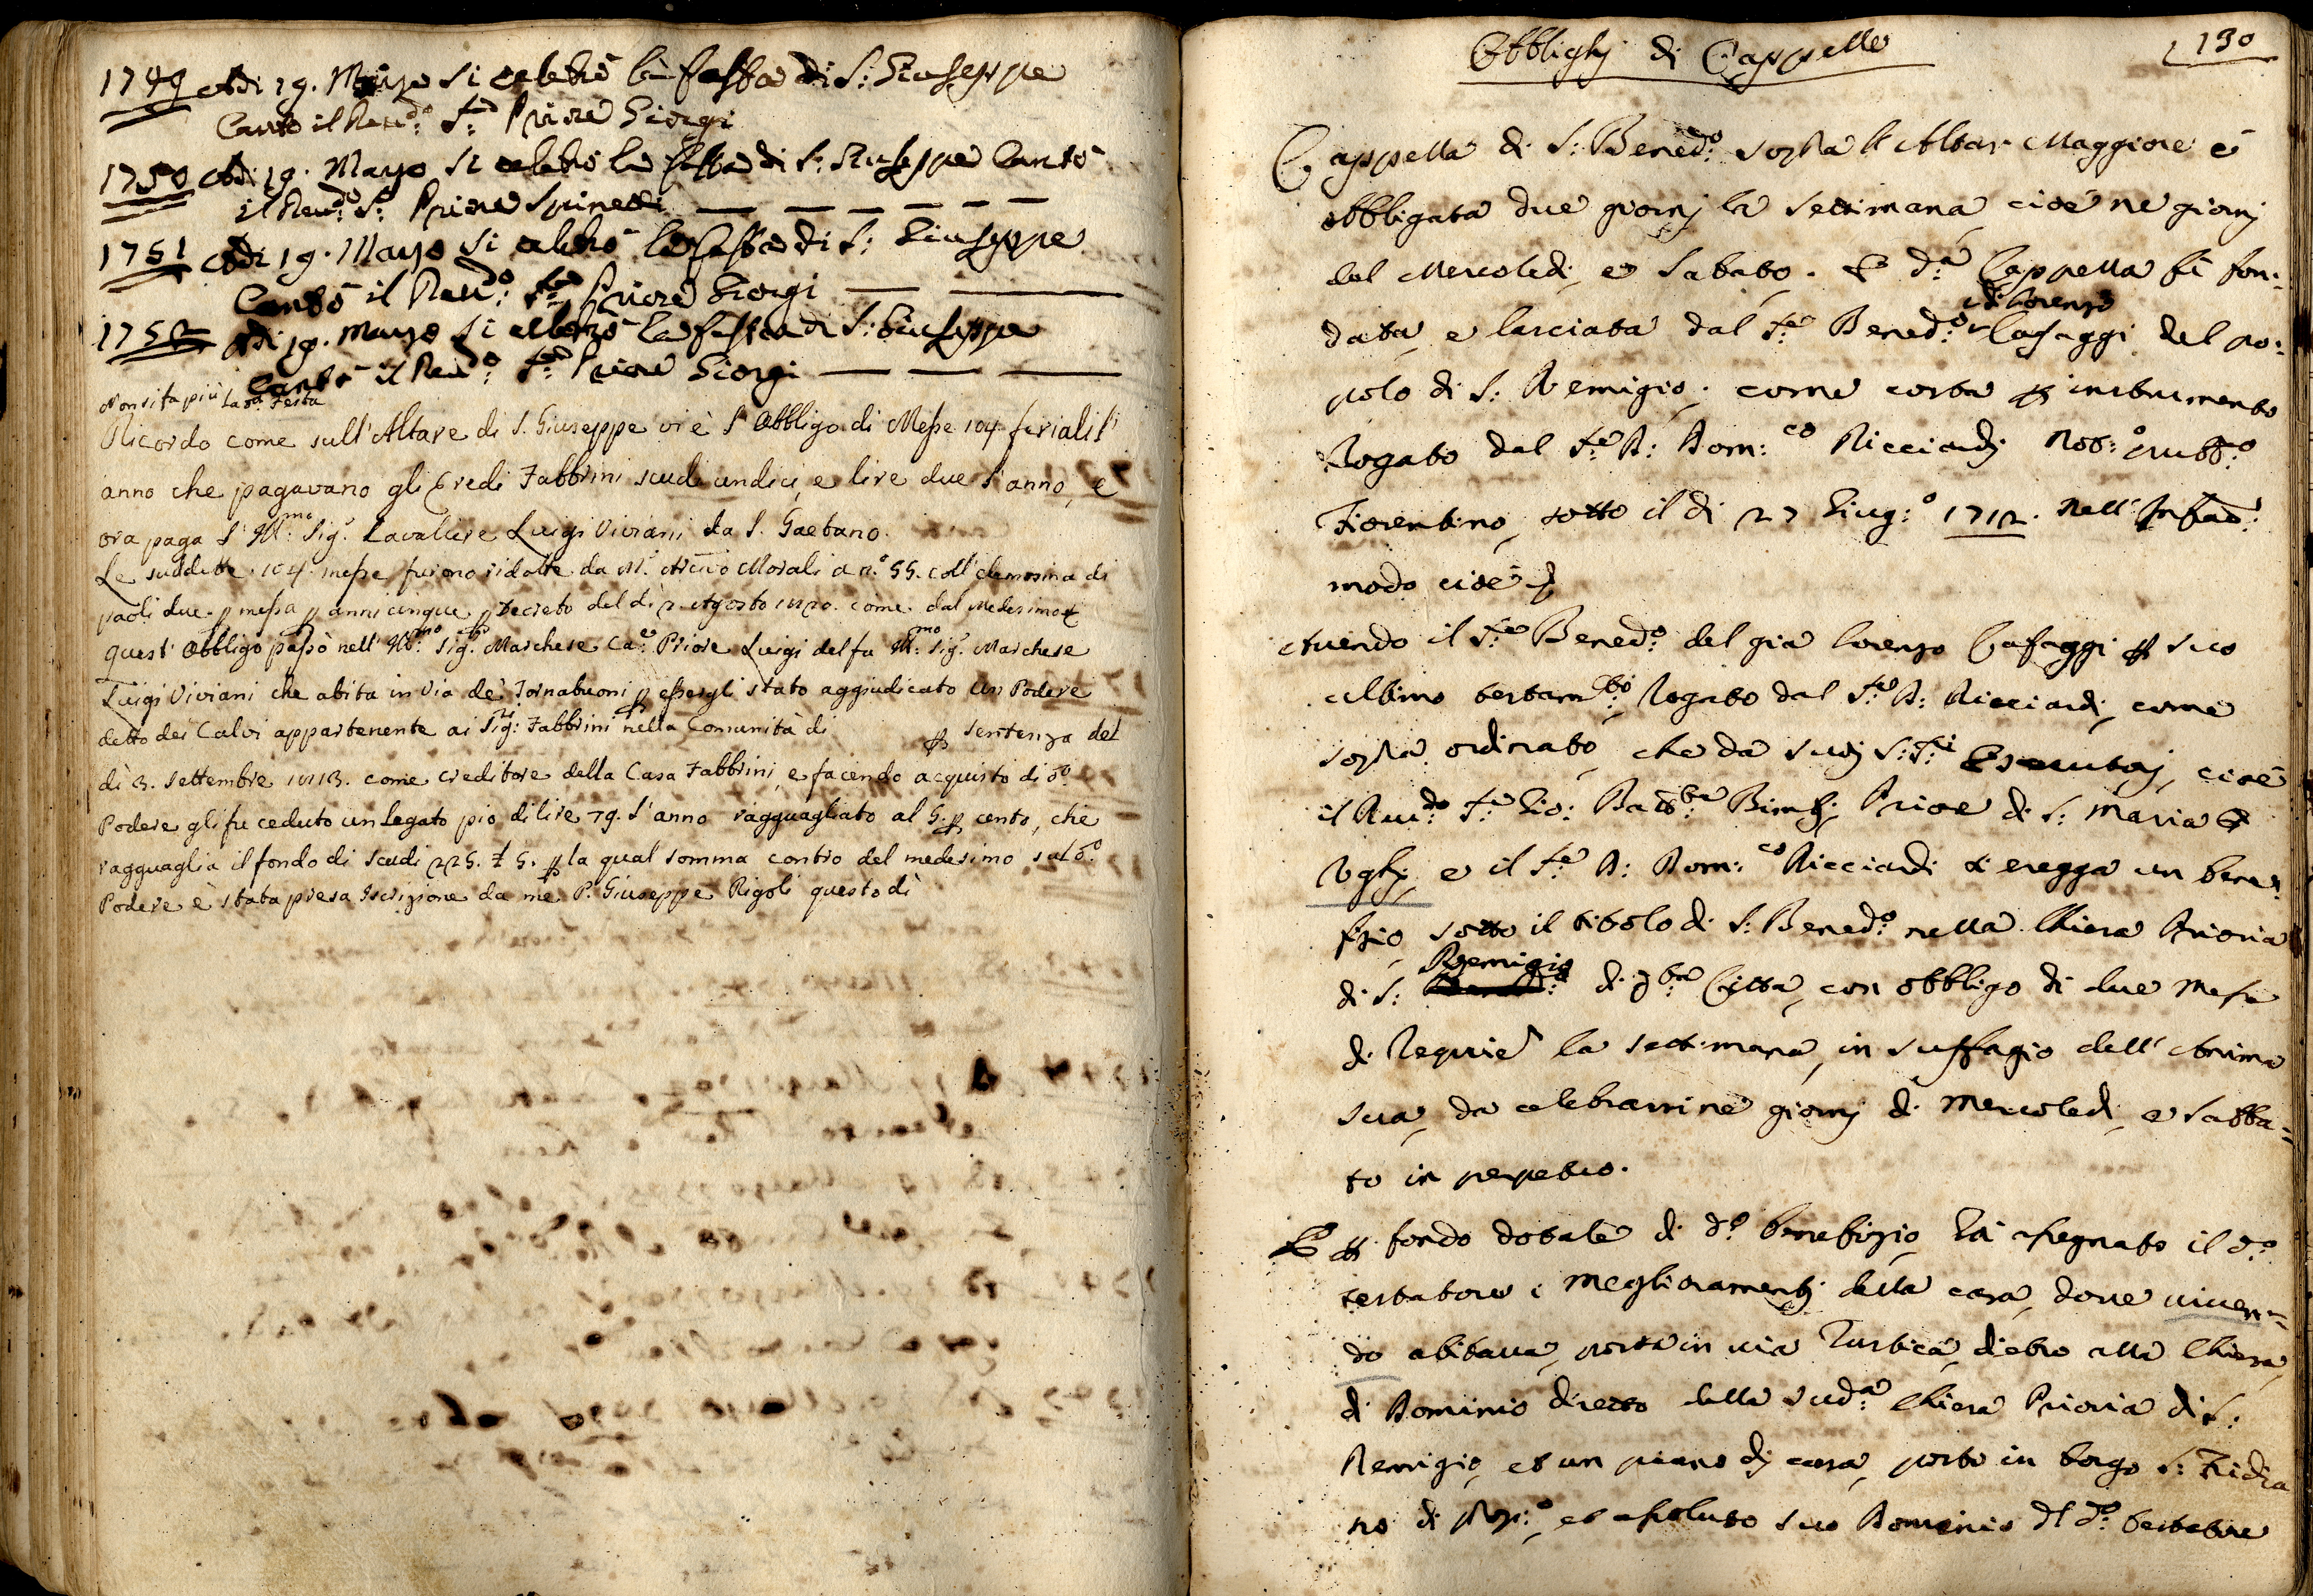 1749 Adi 19. Marzo si celebrò la festa di S: Giuseppe
Cantò il Reud:o S:r Priore Giorgi
1750 Adi 19. Marzo si celebrò la festa di S: Giuseppe Cantò
il Reud:o S:r Priore Spinelli
1751 Adi 19. Marzo si celebrò la festa di S: Giuseppe
Cantò il Reud:o S:r Priore Giorgi
1752 Adi 19. Marzo si celebrò la festa di S: Giuseppe
Cantò il Reud:o S:r Priore Giorgi
Non si fa più la d:a Festa
Ricordo come sull'Altare di S. Giuseppe vi è l'Obbligo di Messe 104 feriali l'
anno che pagavano gli Eredi Fabbrini scudi undici, e lire due l'anno, e
ora paga l'Ill:mo Sig:r Cavaliere Luigi Viviani da S. Gaetano.
Le suddette 104 messe furono ridotte da M:r Arciv:o Morali a n:o 55. coll'elemosina di
paoli due p messa p anni cinque p Decreto del dì 2. Agosto 1820. come dal Medesimo
Quest'Obbligo passò nell'Ill:mo Sig:r Marchese Ca:e Priore Luigi del fu Ill:mo Sig:r Marchese
Luigi Viviani che abita in Via dei Tornabuoni p essergli stato aggiudicato un Podere
detto dei Calvi appartenente ai Sig:ri Fabbrini nella Comunità di p sentenza del
dì 3. settembre 1813. come creditore della Casa Fabbrini, e facendo acquisto di d:o
Podere gli fu ceduto un Legato pio di lire 79. l'anno ragguagliato al 5. p cento, che
ragguaglia il fondo di scudi 225. £ 5. p la qual somma contro del medesimo sul d:o
Podere è stata presa Iscrizione da me P. Giuseppe Rigoli questo dì
Obblighj di Cappelle
190
Cappella di S: Bened:o sopra l'Altar Maggiore è
obbligata due giornj la settimana cioè ne giornj
del Mercoledi, e Sabato. E d:a Cappella fù fon:
data, e lasciata dal S:r Bened:o di Lorenzo Cafaggi del po:
polo di S: Remigio, come costa p instrumento
Rogato dal S:r D: Dom:co Ricciardj Not:o pubb:o
Fiorentino, sotto il di 27 Giug:o 1712. nell'Infrão:
modo cioè
Avendo il S:r Bened:o del già Lorenzo Cafaggi p suo
ultimo testam:to Rogato dal S:r D: Ricciardi, come
sopra, ordinato, che da suoj S:S:ri Esecutorj, cioè
il Reu:do S:r Gio: Batt:a Bimbj Priore di S: Maria
Vghj, e il S:r D: Dom:co Ricciardi si eregga un bene:
fizio, sotto il titolo di S: Bened:o nella Chiesa Prioria
di S: Remigio di q:ta Città, con obbligo di due Messe
di Requie la settimana, in suffragio dell'Anima
sua, da celebrarsi ne giornj di Mercoledi, e Sabba=
to in perpetuo.
E p fondo dotale di d:o benefizio hà assegnato il d:o
testatore i Megliioramentj della casa, dove viuen=
do abitaua, posta in uia Turbica, dietro alla Chiesa,
di Dominio diretto della sud:a Chiesa Prioria di S:
Remigio, et un piano di casa, posto in borgo S: Fridia
no di assoluto suo Dominio d'l d:o testatore